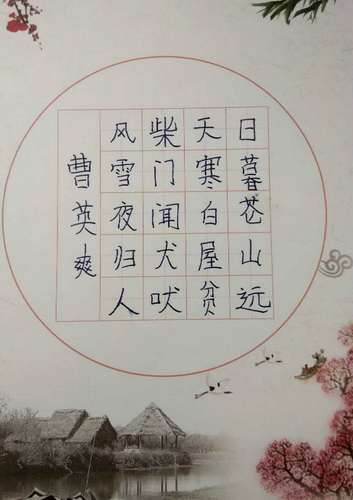 日暮苍山远
天寒白屋贫
柴门闻犬吠
风雪夜归人
曹英爽